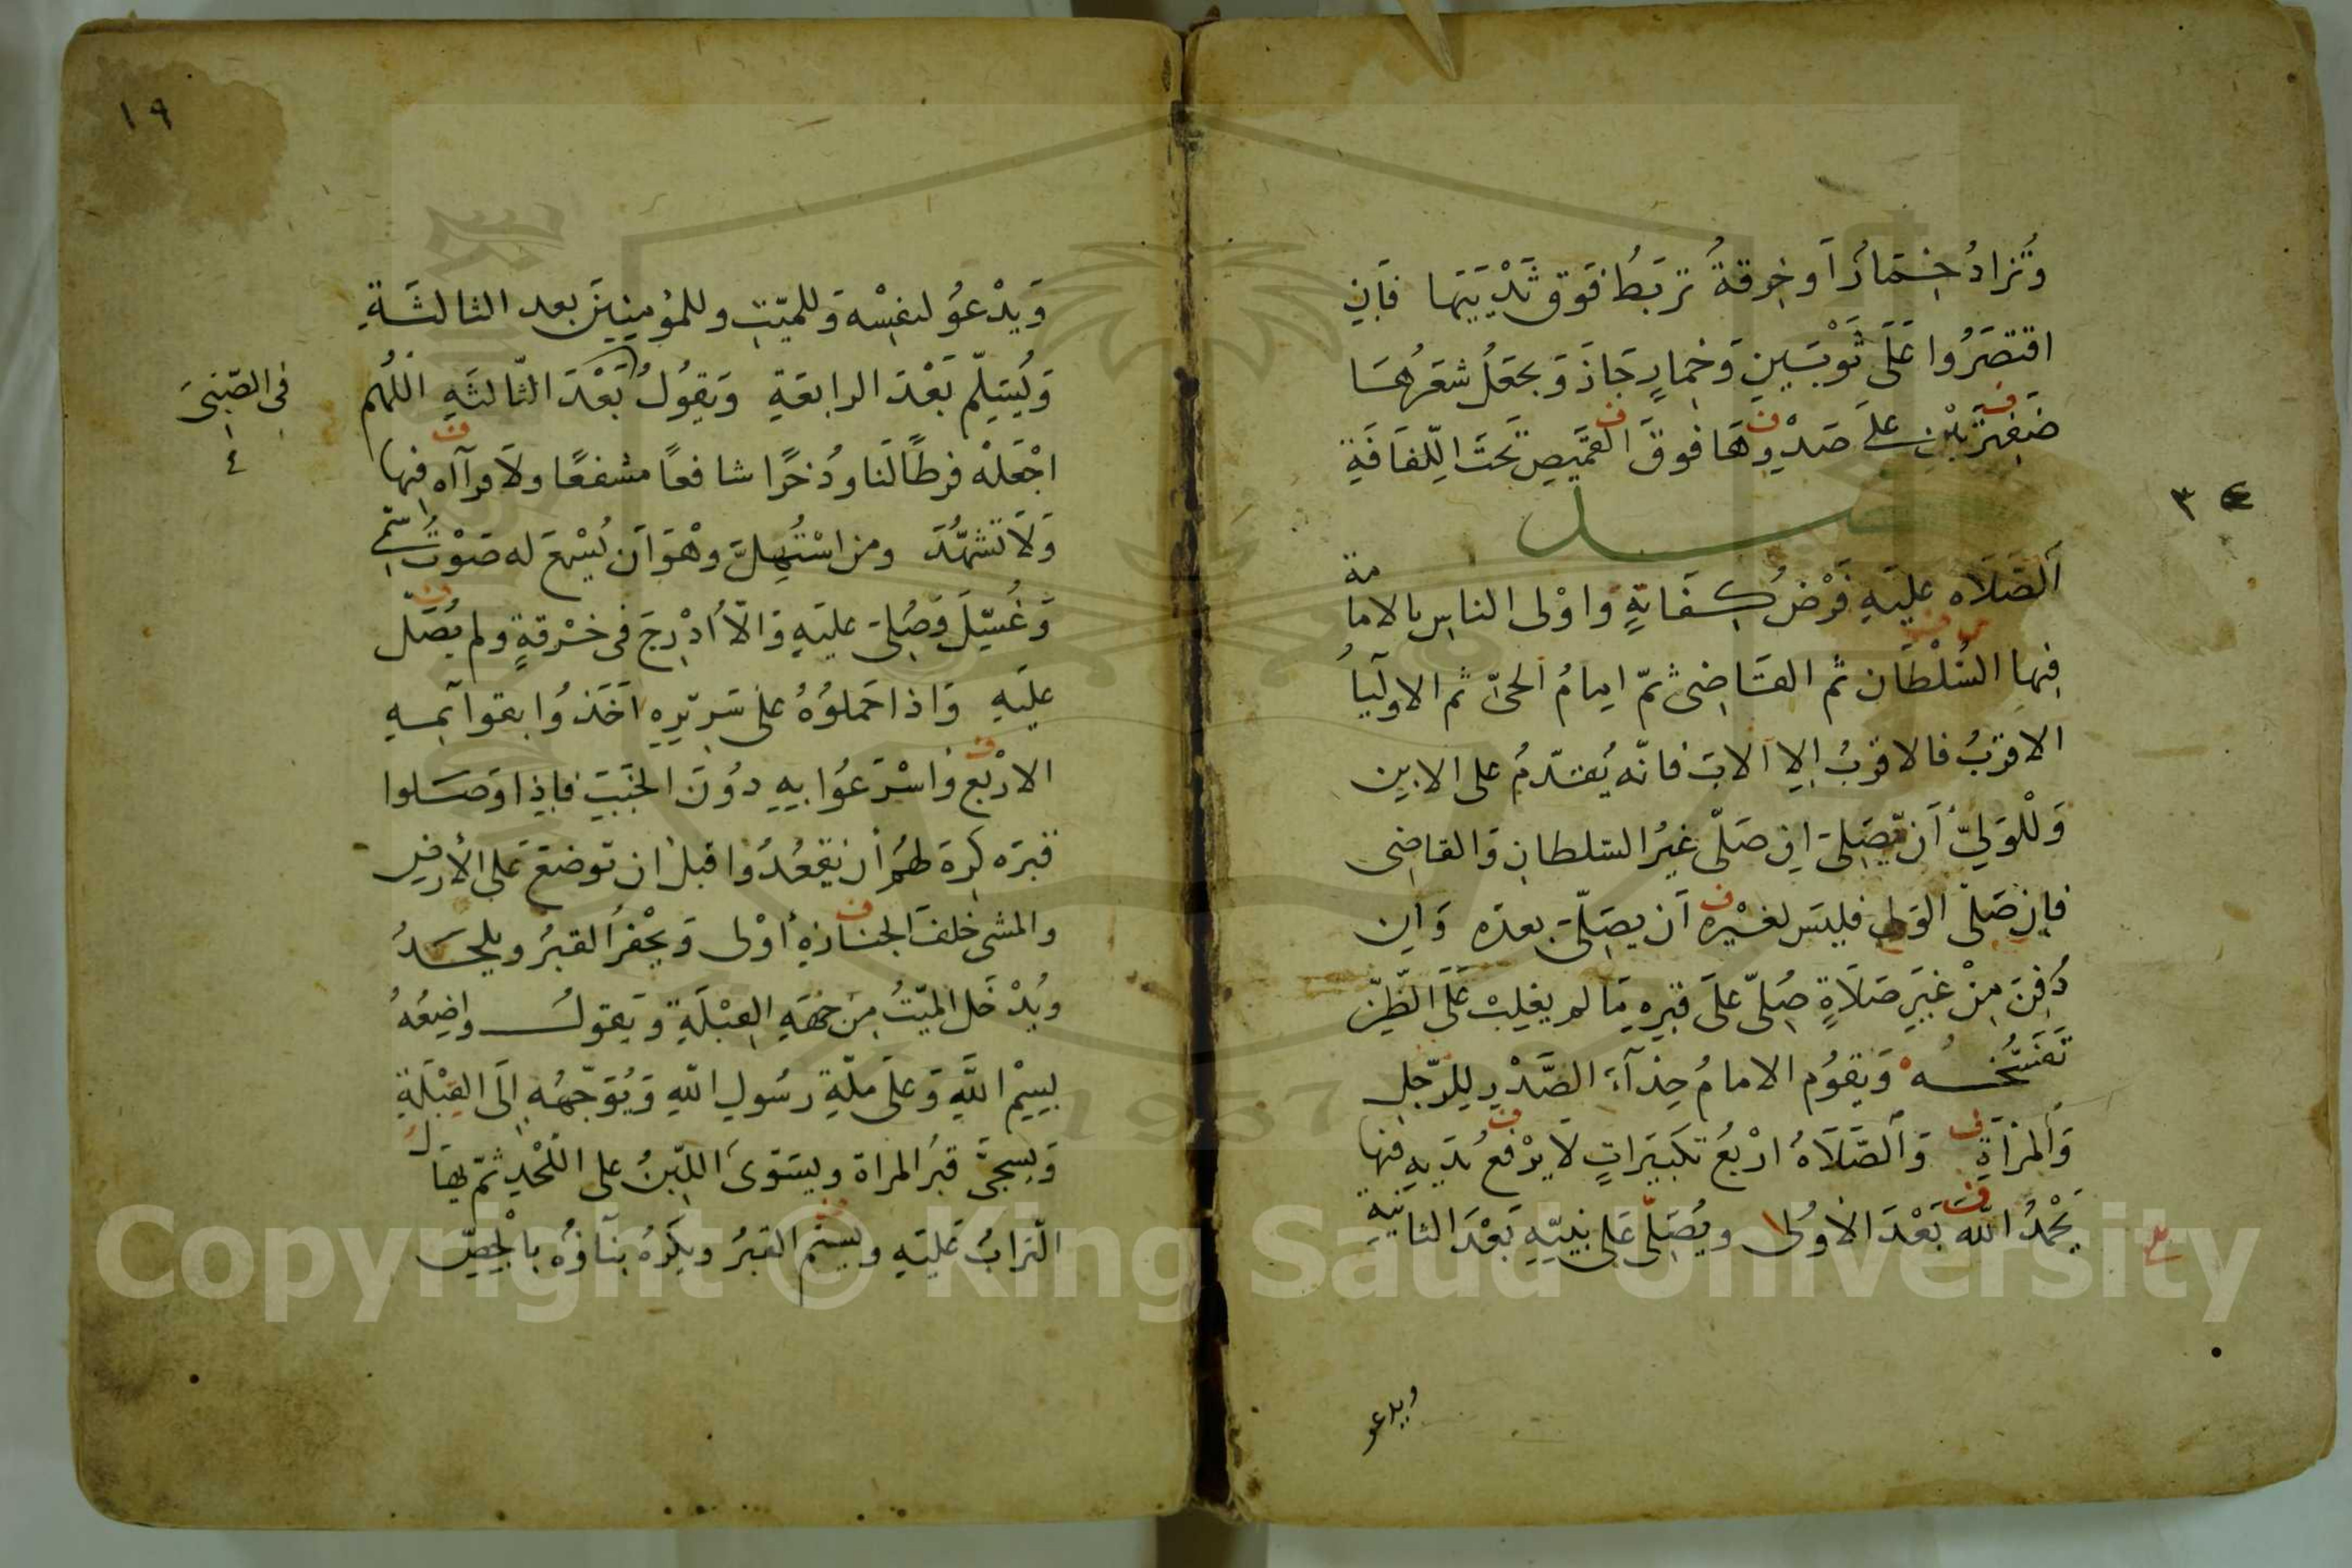 وَتُزَادُ خِمَارًا وخِرقةً تُربَطُ فَوق ثَدْيَيْهَا فَاِنِ
اقتصَرُوا عَلَى ثَوْبَيْنِ وَخِمارٍ جَازَ وَيجعَلُ شعَرُهَا
ضَفِيرَتَيْنِ على صَدْرِهَا فوقَ القَمِيصِ تَحتَ اللِّفَافَةِ
فصل
٣
اَلصَّلَاه عليَهِ فَرْضُ كِفَايَةٍ وَاوْلى الناسِ بالامامة
فِيها السُلْطَان ثم القَاضِى ثمّ اِمامُ الحىّ ثم الاوليآُ
الاقرَبُ فالاقرَبُ اِلا الاَبَ فانّه يُقدّمُ على الابن
وَلِلْوَلِىّ اَن يُّصَلِّىَ اِن صَلّى غيرُ السّلطانِ وَالقاضِى
فاِن صَلّى الوَلى فليسَ لغَيْرِه اَن يصَلِّىَ بعدَه وَاِن
دُفِنَ مِنْ غَيرِ صَلَاةٍ صُلِّى عَلَى قبرِهِ مَا لم يغلِبْ عَلَى الظّنِّ
تَفَسُّخُه وَيقوُم الامامُ حِذآءَ الصَّدْرِ لِلرّجلِ
وَالمرْأَةِ وَالصَّلَاةُ ارْبَعُ تكبيَراتٍ لَا يرْفعُ يدَيهِ فيها
يَحْمدُ اللّه بَعْدَ الاوُلى ويُصَلّى عَلى نبيّهِ بَعْدَ الثانيَةِ
ويدعو
١٩
وَيدْعوُ لنفسِه وَللميّتِ وللمؤمِنِينَ بعد الثالثَةِ
وَيُسَلِّم بَعْدَ الرابعَةِ وَيقوُلُ بَعْدَ الثّالثَهِ اللّهُم
فى الصّبِىّ
٤
اجْعَلْه فرطًا لَنا وذُخرًا شافعًا مشفعًا ولَا قرآاه فِيها
وَلَا تَشهُّدَ ومن اسْتُهِلّ وهْوَ اَن يُسْمعَ له صَوْتُ سُمِّى
وَغُسِّلَ وَصُلِّىَ عليَهِ وَالّا اُدْرِجَ فى خرْقةٍ ولم يُصَلّ
عليَهِ وَاذا حَملوُهُ عَلى سَريْرِهِ اَخَذوُا بقوآئِمِهِ
الارْبَعِ وَاسْرَعوُا بِهِ دوُنَ الخَبَبِ فاِذا وَصَلوا
قبرَه كرِهَ لهُم أن يقعُدوُا قبل ان توضعَ عَلى الأرضِ
والمشى خلفَ الجنازةِ أوْلى وَيحْفرُ القبرُ ويلحَدُ
ويُدْخَل الميّتُ مِن جهَهِ القِبْلَةِ وَيَقولُ واضِعُهُ
بِسِمْ اللَّهِ وَعَلَى ملّةِ رسُولِ اللّهِ وَيُوَجّهُهِ اِلَى القِبْلَةِ
وَيسجىَّ قبرُ المراة ويسَوّى اللبِنُ على اللحْدِ ثمّ يهَالُ
التّرابُ عَليَهِ ويسنم القبرُ ويكرَهُ بنآؤُه باْلجِصِّ